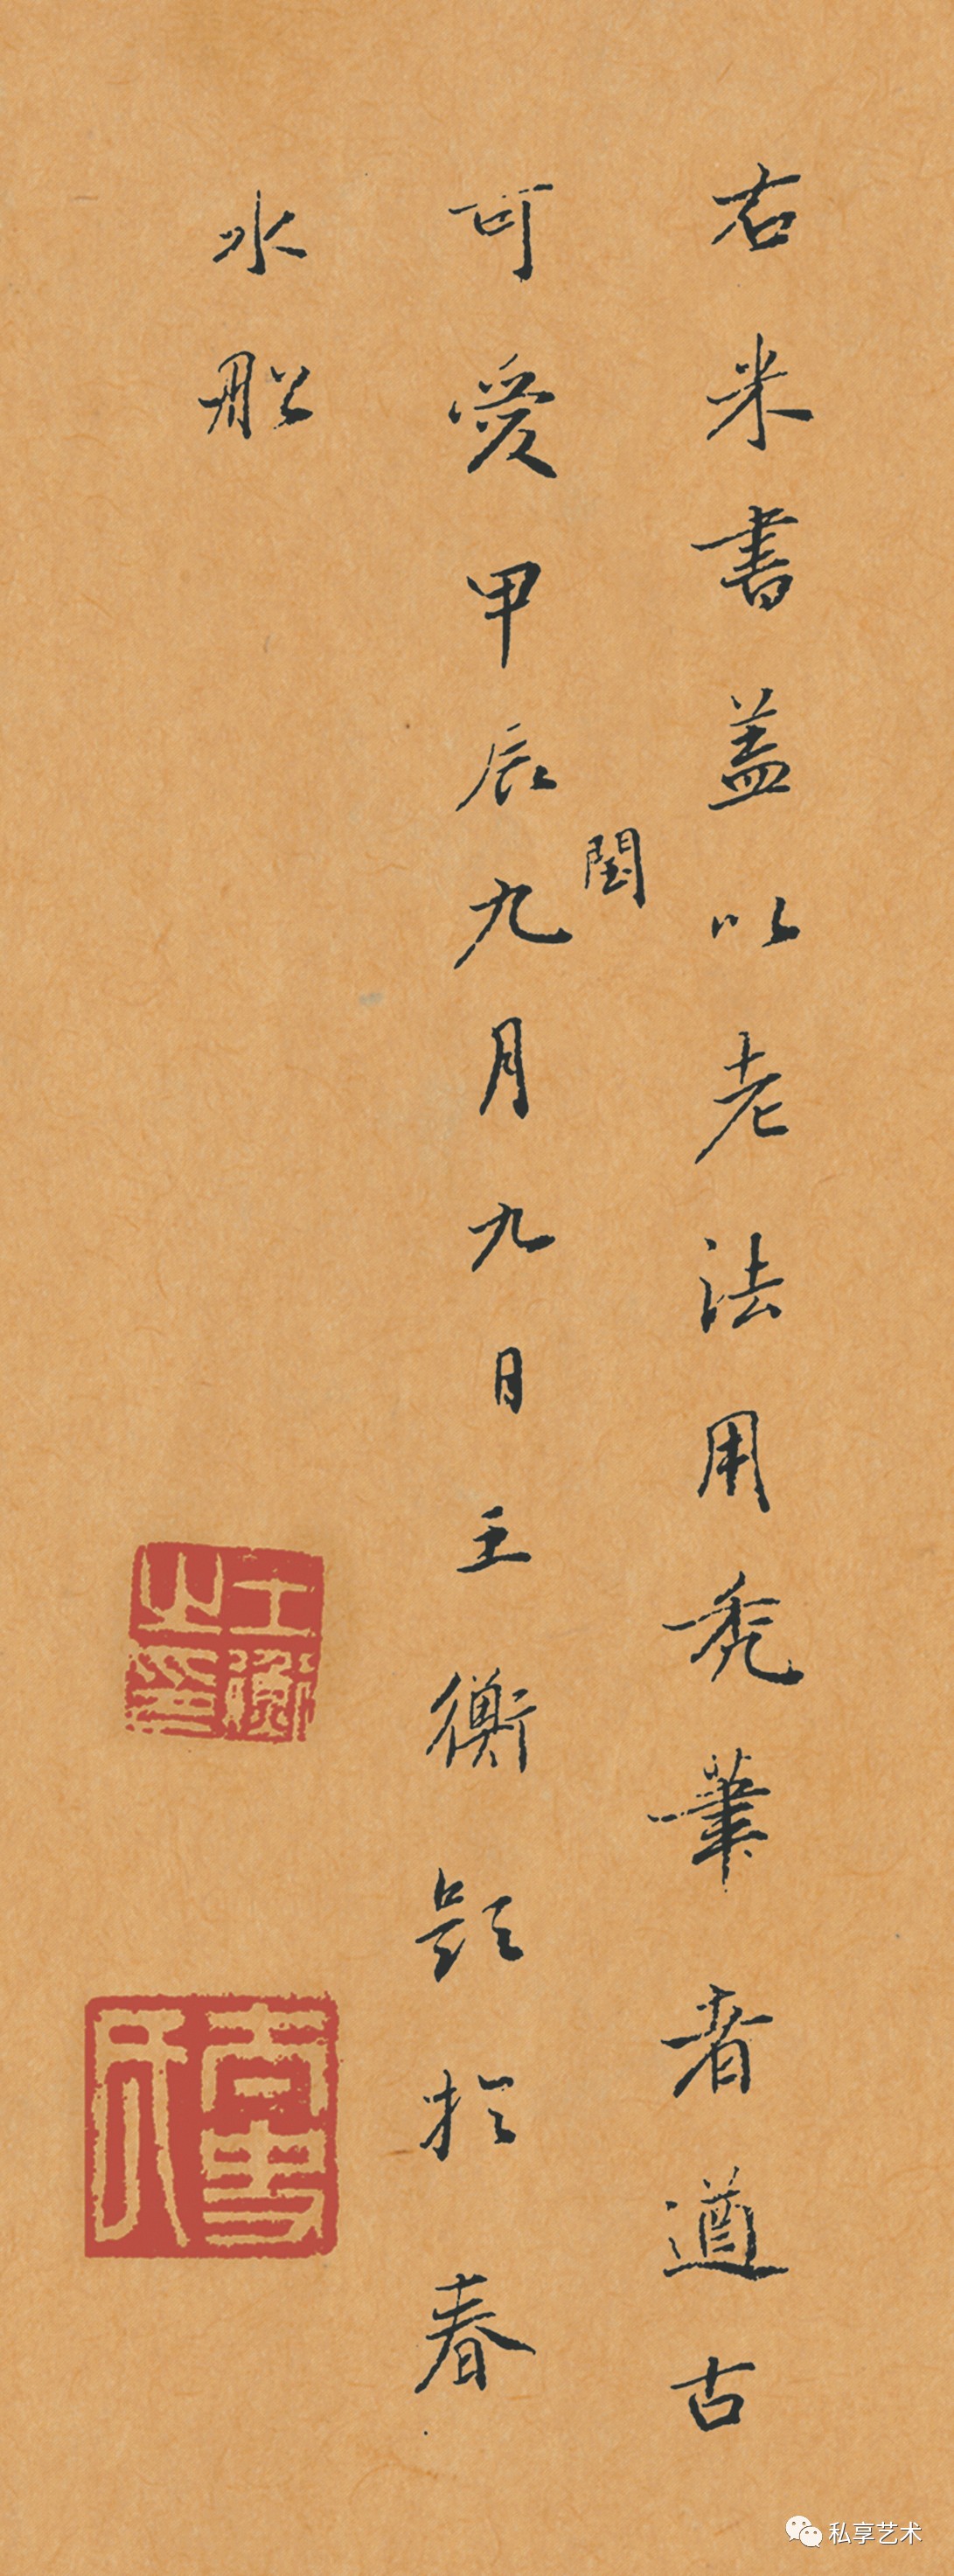 右米書蓋以老法用禿筆者遒古
可愛甲辰閏九月九日王衡題於春
水船
王衡之印
私享艺术